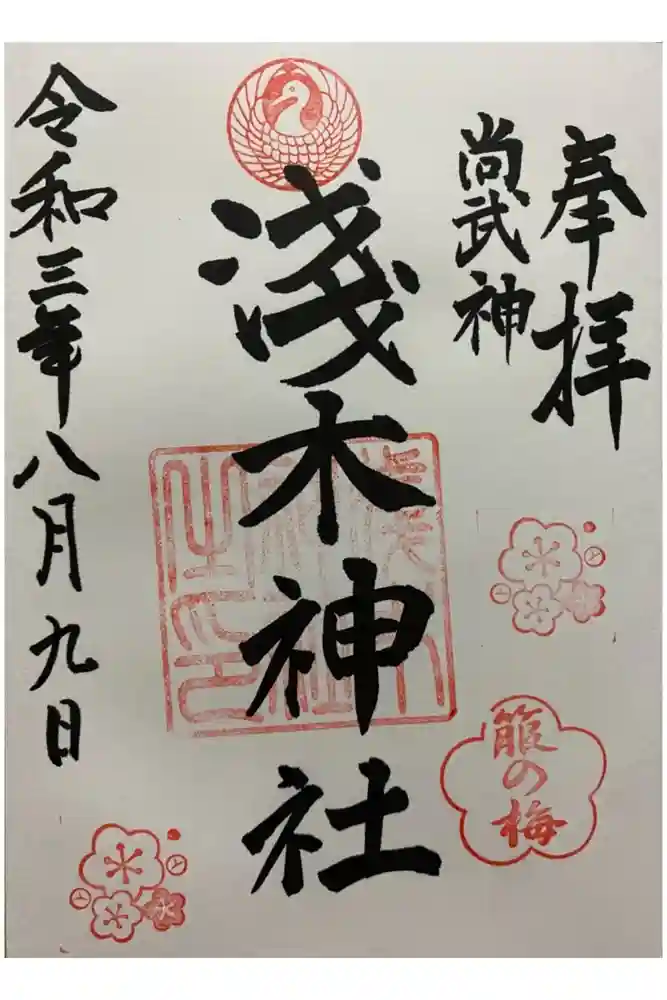 奉拝
尚武神
淺木神社
令和三年八月九日
箙の梅